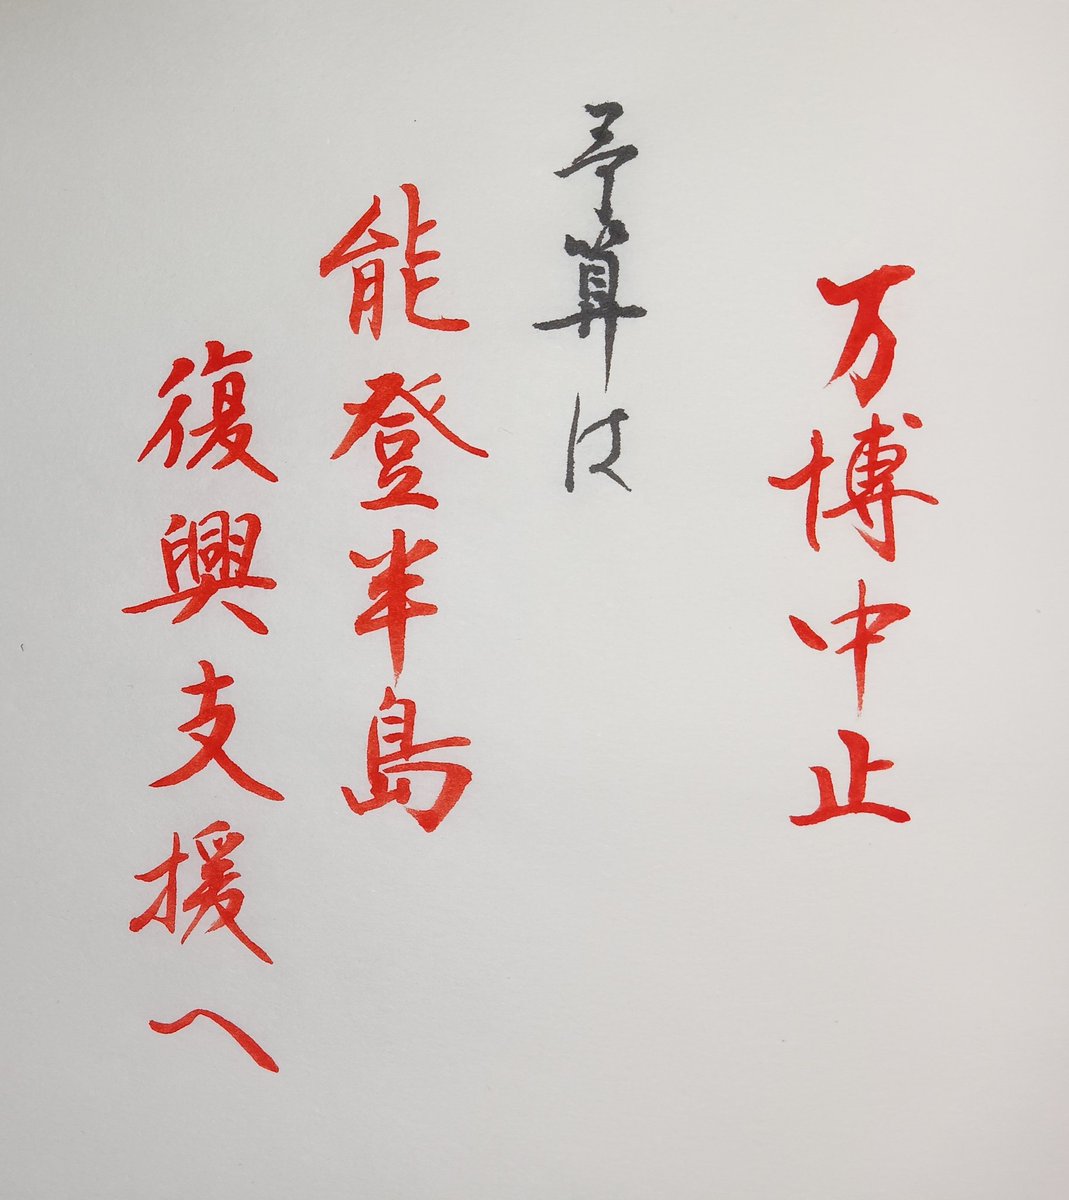 万博中止
予算は
能登半島
復興支援へ